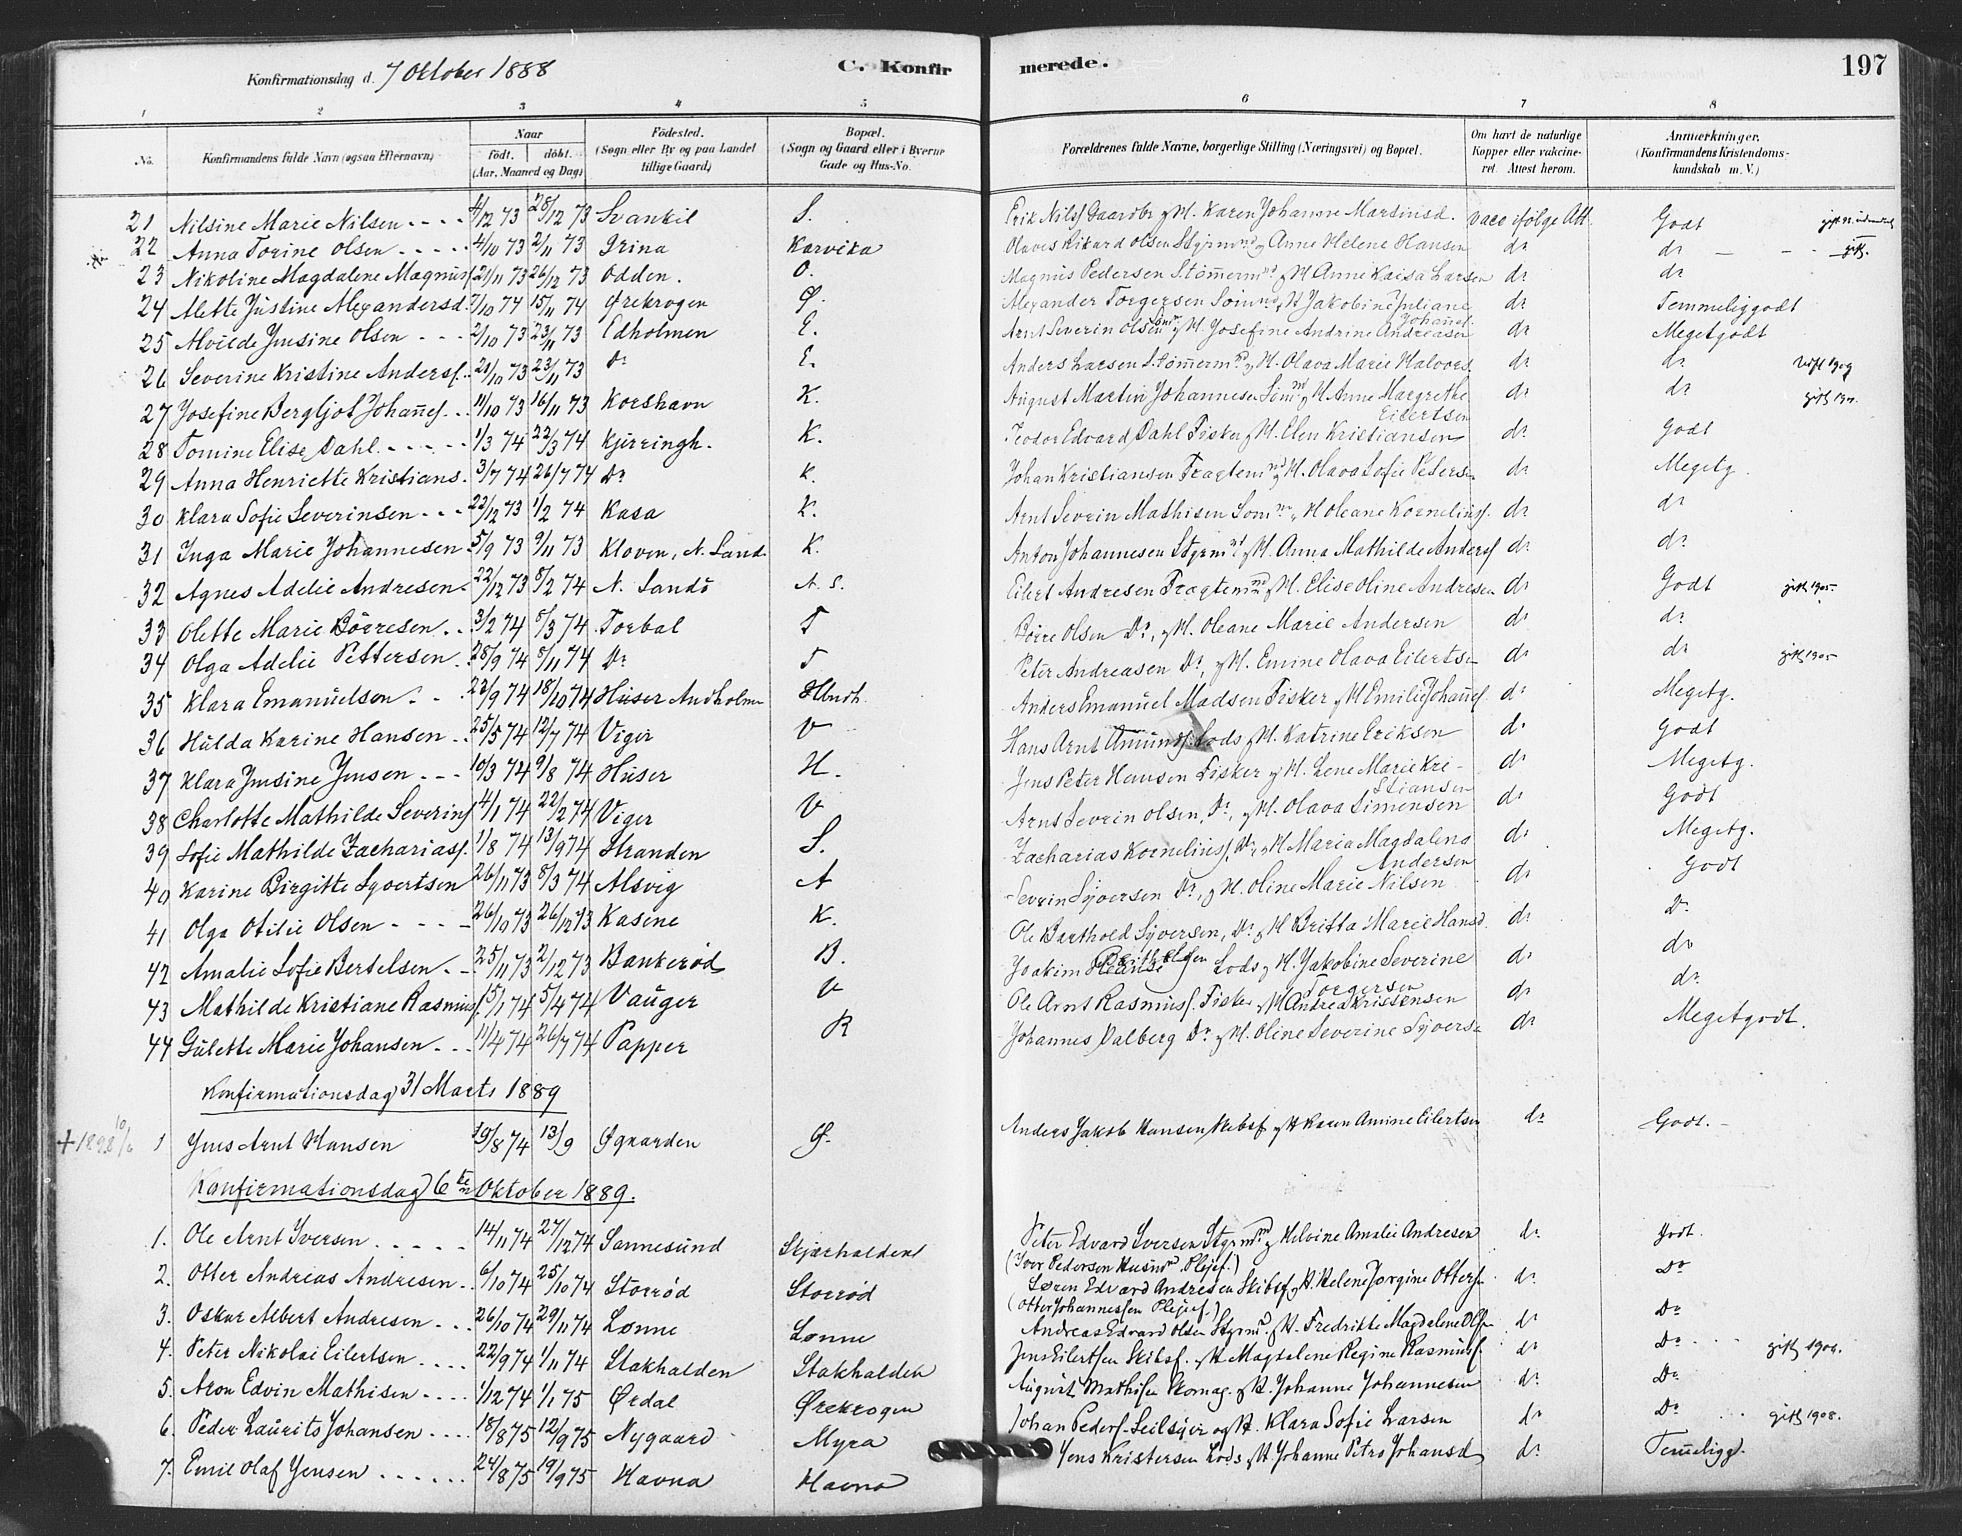 Konfirmationsdag d. 7 Oktober 1888 C. Konfirmerede. 197
1 2 3 4 5 6 7 8
No. Konfirmandens fulde Navn (ogsaa Efternavn) Naar født. døbt. (Aar, Maaned og Dag) Fødested. (Sogn eller By og paa Landet tillige Gaard) Bopæl. (Sogn og Gaard eller i Byerne Gade og Hus-No. Forældrenes fulde Navne, borgerlige Stilling (Næringsvei) og Bopæl. Om havt de naturlige Kopper eller vakcineret. Attest herom. Anmærkninger. (Konfirmandens Kristendomskundskab m. V.)
21 Nilsine Marie Nilsen 4/12 73 28/12 73 Svankil S. Erik Nilss Gaardbr. & H. Karen Johanne Martinsd. vacc ifølge Att. Godt
22 Anna Torine Olsen 4/10 73 2/11 73 Grina Korvika Olaves Rikard Olsen Styrmnd & Anne Helene Hansen dr dr gift.
23 Nikoline Magdalene Magnuss 21/11 73 26/12 73 Odden. O. Magnus Pedersen Stömermd & H Anne Kaisa Larsen dr dr
24 Mette Justine Alexandersd. 7/10 74 15/11 74 Ørekrogen Ø. Alexander Torgersen Sömnd & H Jakobine Juliane Johannes. dr Temmeliggodt
25 Alvilde Jensine Olsen 2/10 73 23/11 73 Edholmen E. Arnt Severin Olsen Smd & H. Josefine Andrine Andreasen dr Megetgodt
26 Severine Kristine Anderss. 21/10 73 23/11 73 dr E. Anders Larsen Stömermd & H. Olava Marie Halvors. dr dr gift 1909
27 Josefine Bergljot Johannes. 11/10 73 16/11 73 Korshavn K. August Martin Johannesen Sömd & H Anne Margrethe Eilertsen dr dr
28 Tomine Elise Dahl 1/3 74 22/3 74 Kjærringh. K. Teodor Edvard Dahl Fisker & H. Elen Kristiansen dr Godt
29 Anna Henriette Kristians. 3/7 74 26/7 74 Dr K. Johan Kristiansen Fragtemnd & H. Olava Sofie Petersen dr Megetg.
30 Klara Sofie Severinsen 22/12 73 1/2 74 Kasa K. Arnt Sevrin Mathisen Sömm & H Oleane Korneliuss. dr dr
31 Inga Marie Johannesen 5/9 73 9/11 73 Kloven, N. Sand K. Anton Johannesen Styrmd & H. Anna Mathilde Anderss dr dr
32 Agnes Adelie Andresen 22/12 73 5/2 74 N. Sandö N. S. Eilert Andresen Fragtemnd & H. Elise Oline Andresen dr Godt gift 1905
33 Olette Marie Börresen 3/2 74 5/3 74 Torbal T Börre Olsen Dr, & H. Oleane Marie Andersen dr dr
34 Olga Adelie Pettersen 28/9 74 5/11 74 Dr T Peter Andreasen Dr, & H. Emine Olava Eilertsen dr dr gift 1905
35 Klara Emanuelson 22/9 74 18/10 74 Huser Andholmen H Anders Emanuel Madsen Fisker & H Emilie Johannes. dr Megetg.
36 Hulda Karine Hansen 25/5 74 12/7 74 Viger V Hans Arnt Amunds. Lods & H. Katrine Erikson dr Godt
37 Klara Jensine Jensen 10/3 74 9/8 74 Huser H. Jens Peter Hansen Fisker & H. Lene Marie Kristiansen dr Megetg.
38 Charlotte Mathilde Severins 4/1 74 22/2 74 Viger V Arnt Sevrin Olsen, Dr, & H. Olava Simensen dr Godt
39 Sofie Mathilde Zachariass. 1/8 74 13/9 74 Stranden S. Zacharias Korneliuss, Dr, & H Maria Magdalena Andersen dr Megetg.
40 Karine Birgitte Syvertsen 26/11 73 8/3 74 Alsvig A Sevrin Syversen Dr, & H. Oline Marie Nilsen dr Godt
41 Olga Otilie Olsen 26/10 73 26/12 73 Kasene K. Ole Barthold Syversen, Dr & H Britta Marie Hansd. dr Dr
42 Amalie Sofie Bertelsen 25/11 73 2/12 73 Bankerød B. Joakim Berthelsen Lods & H. Jakobine Severine Torgersen dr dr
43 Mathilde Kristiane Rasmuss. 15/1 74 5/4 74 Vauger V Ole Arnt Rasmuss. Fisker & H Andrea Kristensen dr dr
44 Gulette Marie Johansen 11/4 74 26/7 74 Papper R Johannes Dalberg Dr & H. Oline Severine Syvers. dr Megetgodt.
Konfirmationsdag 31 Marts 1889
+ 1898 10/6 1 Jens Arnt Hansen 19/8 74 13/9 Øgaarden Ø. Anders Jakob Hansen Skibsf & H Karen Amine Eilertsen dr Godt.
Konfirmationsdag 6te Oktober 1889.
1. Ole Arnt Iversen 14/11 74 27/12 74 Sannesund Skjærhalden Peter Edvard Iversen Styrmnd & Helvine Amalie Andresen (Iver Pedersen Husmd Plejef.) dr Godt.
2. Otter Andreas Andresen 6/10 74 25/10 74 Storrød Storrød Søren Edvard Andresen Skibsf & H. Helene Jørgine Otters. (Otter Johannessen Plejef.) dr Dr
3. Oskar Albert Andresen 26/10 74 29/11 74 Lønne Lønne Andreas Edvard Olsen Styrmd. & H. Fredrikke Magdalene Olsen dr Dr
4. Peter Nikolai Eilertsen 22/9 74 1/11 74 Stakhalden Stakhalden Jens Eilertsen Skibsf. & H Magdalene Regine Rasmuss. dr Dr
5. Aron Edvin Mathisen 1/12 74 1/1 75 Ørdal Ørekrogen August Mathisen Skomag. & H. Johanne Johannesen dr Dr
6. Peder Laurits Johansen 18/8 75 12/9 75 Nygaard Myra Johan Peders. Seilsyer og H. Klara Sofie Larsen dr Dr gift 1908.
7. Emil Olaf Jensen 24/8 75 19/9 75 Havna Havna Jens Kristersen Lods & H Johanne Petra Johansd dr Temeligg.